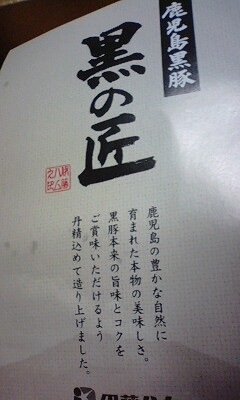 鹿児島黒豚
黒の匠
鹿児島の豊かな自然に
育まれた本物の美味しさ。
黒豚本来の旨味とコクを
ご賞味いただけるよう
丹精込めて造り上げました。